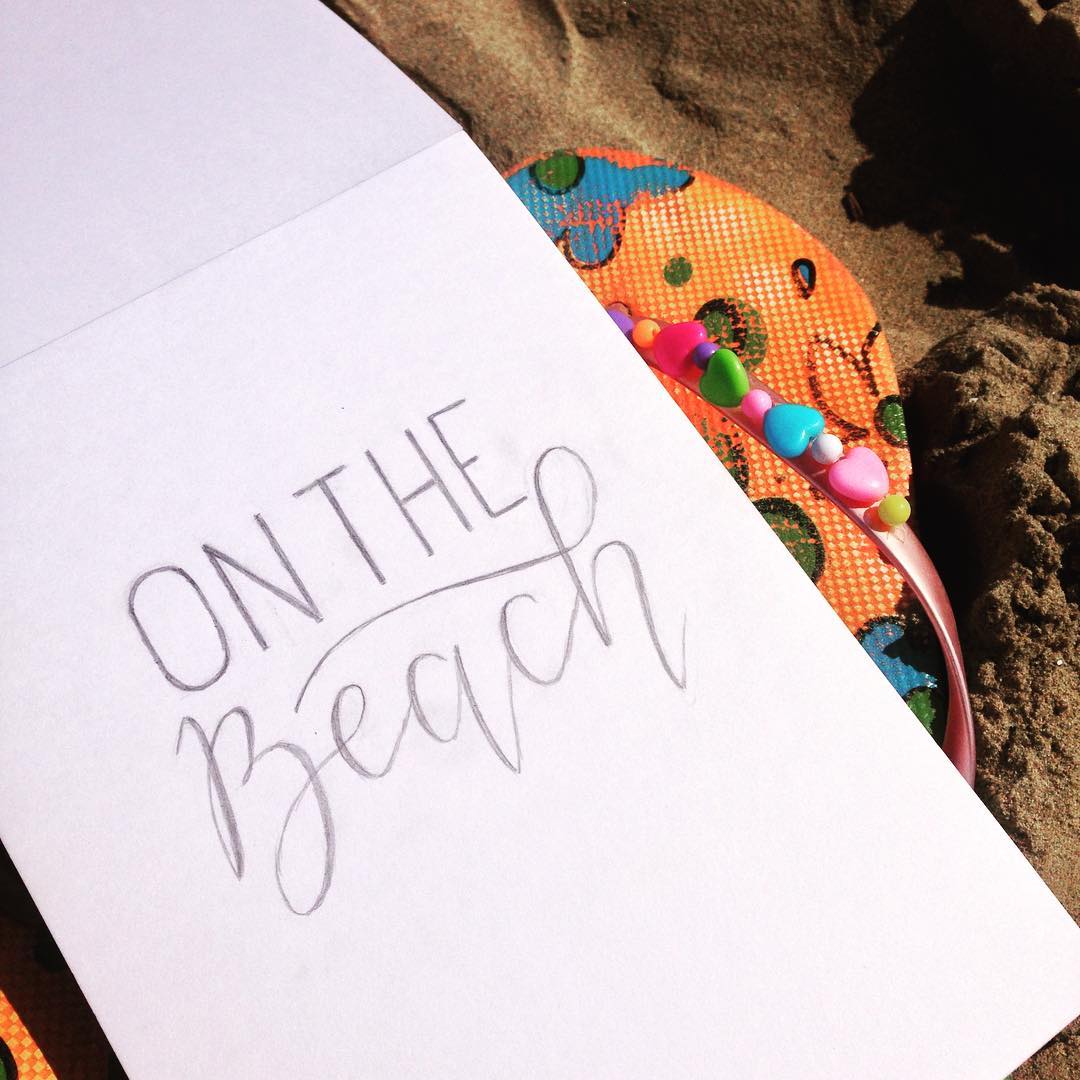 ON THE
Beach